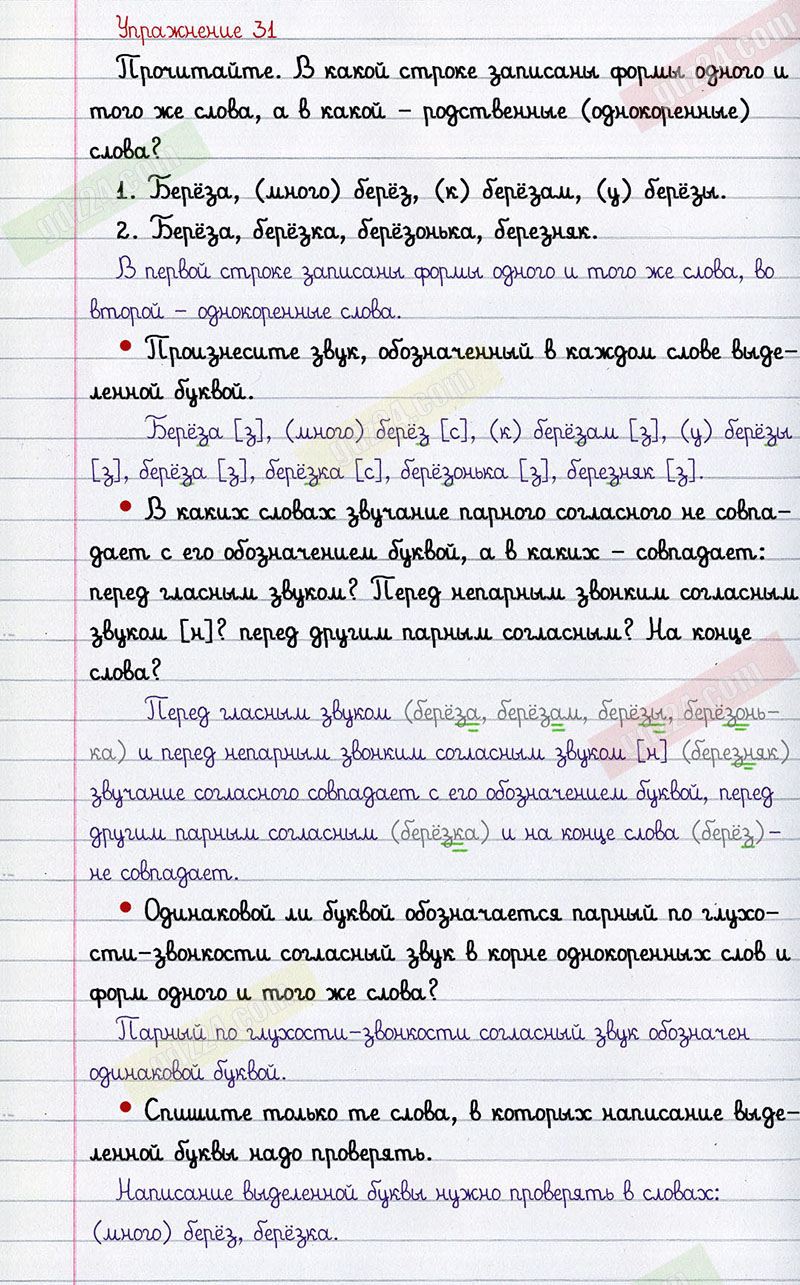 Упражнение 31
Прочитайте. В какой строке записаны формы одного и
того же слова, а в какой – родственные (однокоренные)
слова?
1. Берёза, (много) берёз, (к) берёзам, (у) берёзы.
2. Берёза, берёзка, берёзонька, березняк.
В первой строке записаны формы одного и того же слова, во
второй – однокоренные слова.
• Произнесите звук, обозначенный в каждом слове выде-
ленной буквой.
Берёза [з], (много) берёз [с], (к) берёзам [з], (у) берёзы
[з], берёза [з], берёзка [с], берёзонька [з], березняк [з].
• В каких словах звучание парного согласного не совпа-
дает с его обозначением буквой, а в каких – совпадает:
перед гласным звуком? Перед непарным звонким согласным
звуком [н]? перед другим парным согласным? На конце
слова?
Перед гласным звуком (берёза, берёзам, берёзы, берёзонь-
ка) и перед непарным звонким согласным звуком [н] (березняк)
звучание согласного совпадает с его обозначением буквой, перед
другим парным согласным (берёзка) и на конце слова (берёз)–
не совпадает.
• Одинаковой ли буквой обозначается парный по глухо-
сти-звонкости согласный звук в корне однокоренных слов и
форм одного и того же слова?
Парный по глухости-звонкости согласный звук обозначен
одинаковой буквой.
• Спишите только те слова, в которых написание выде-
ленной буквы надо проверять.
Написание выделенной буквы нужно проверять в словах:
(много) берёз, берёзка.
gdz24.com
gdz24.com
gdz24.com
gdz24.com
gdz24.com